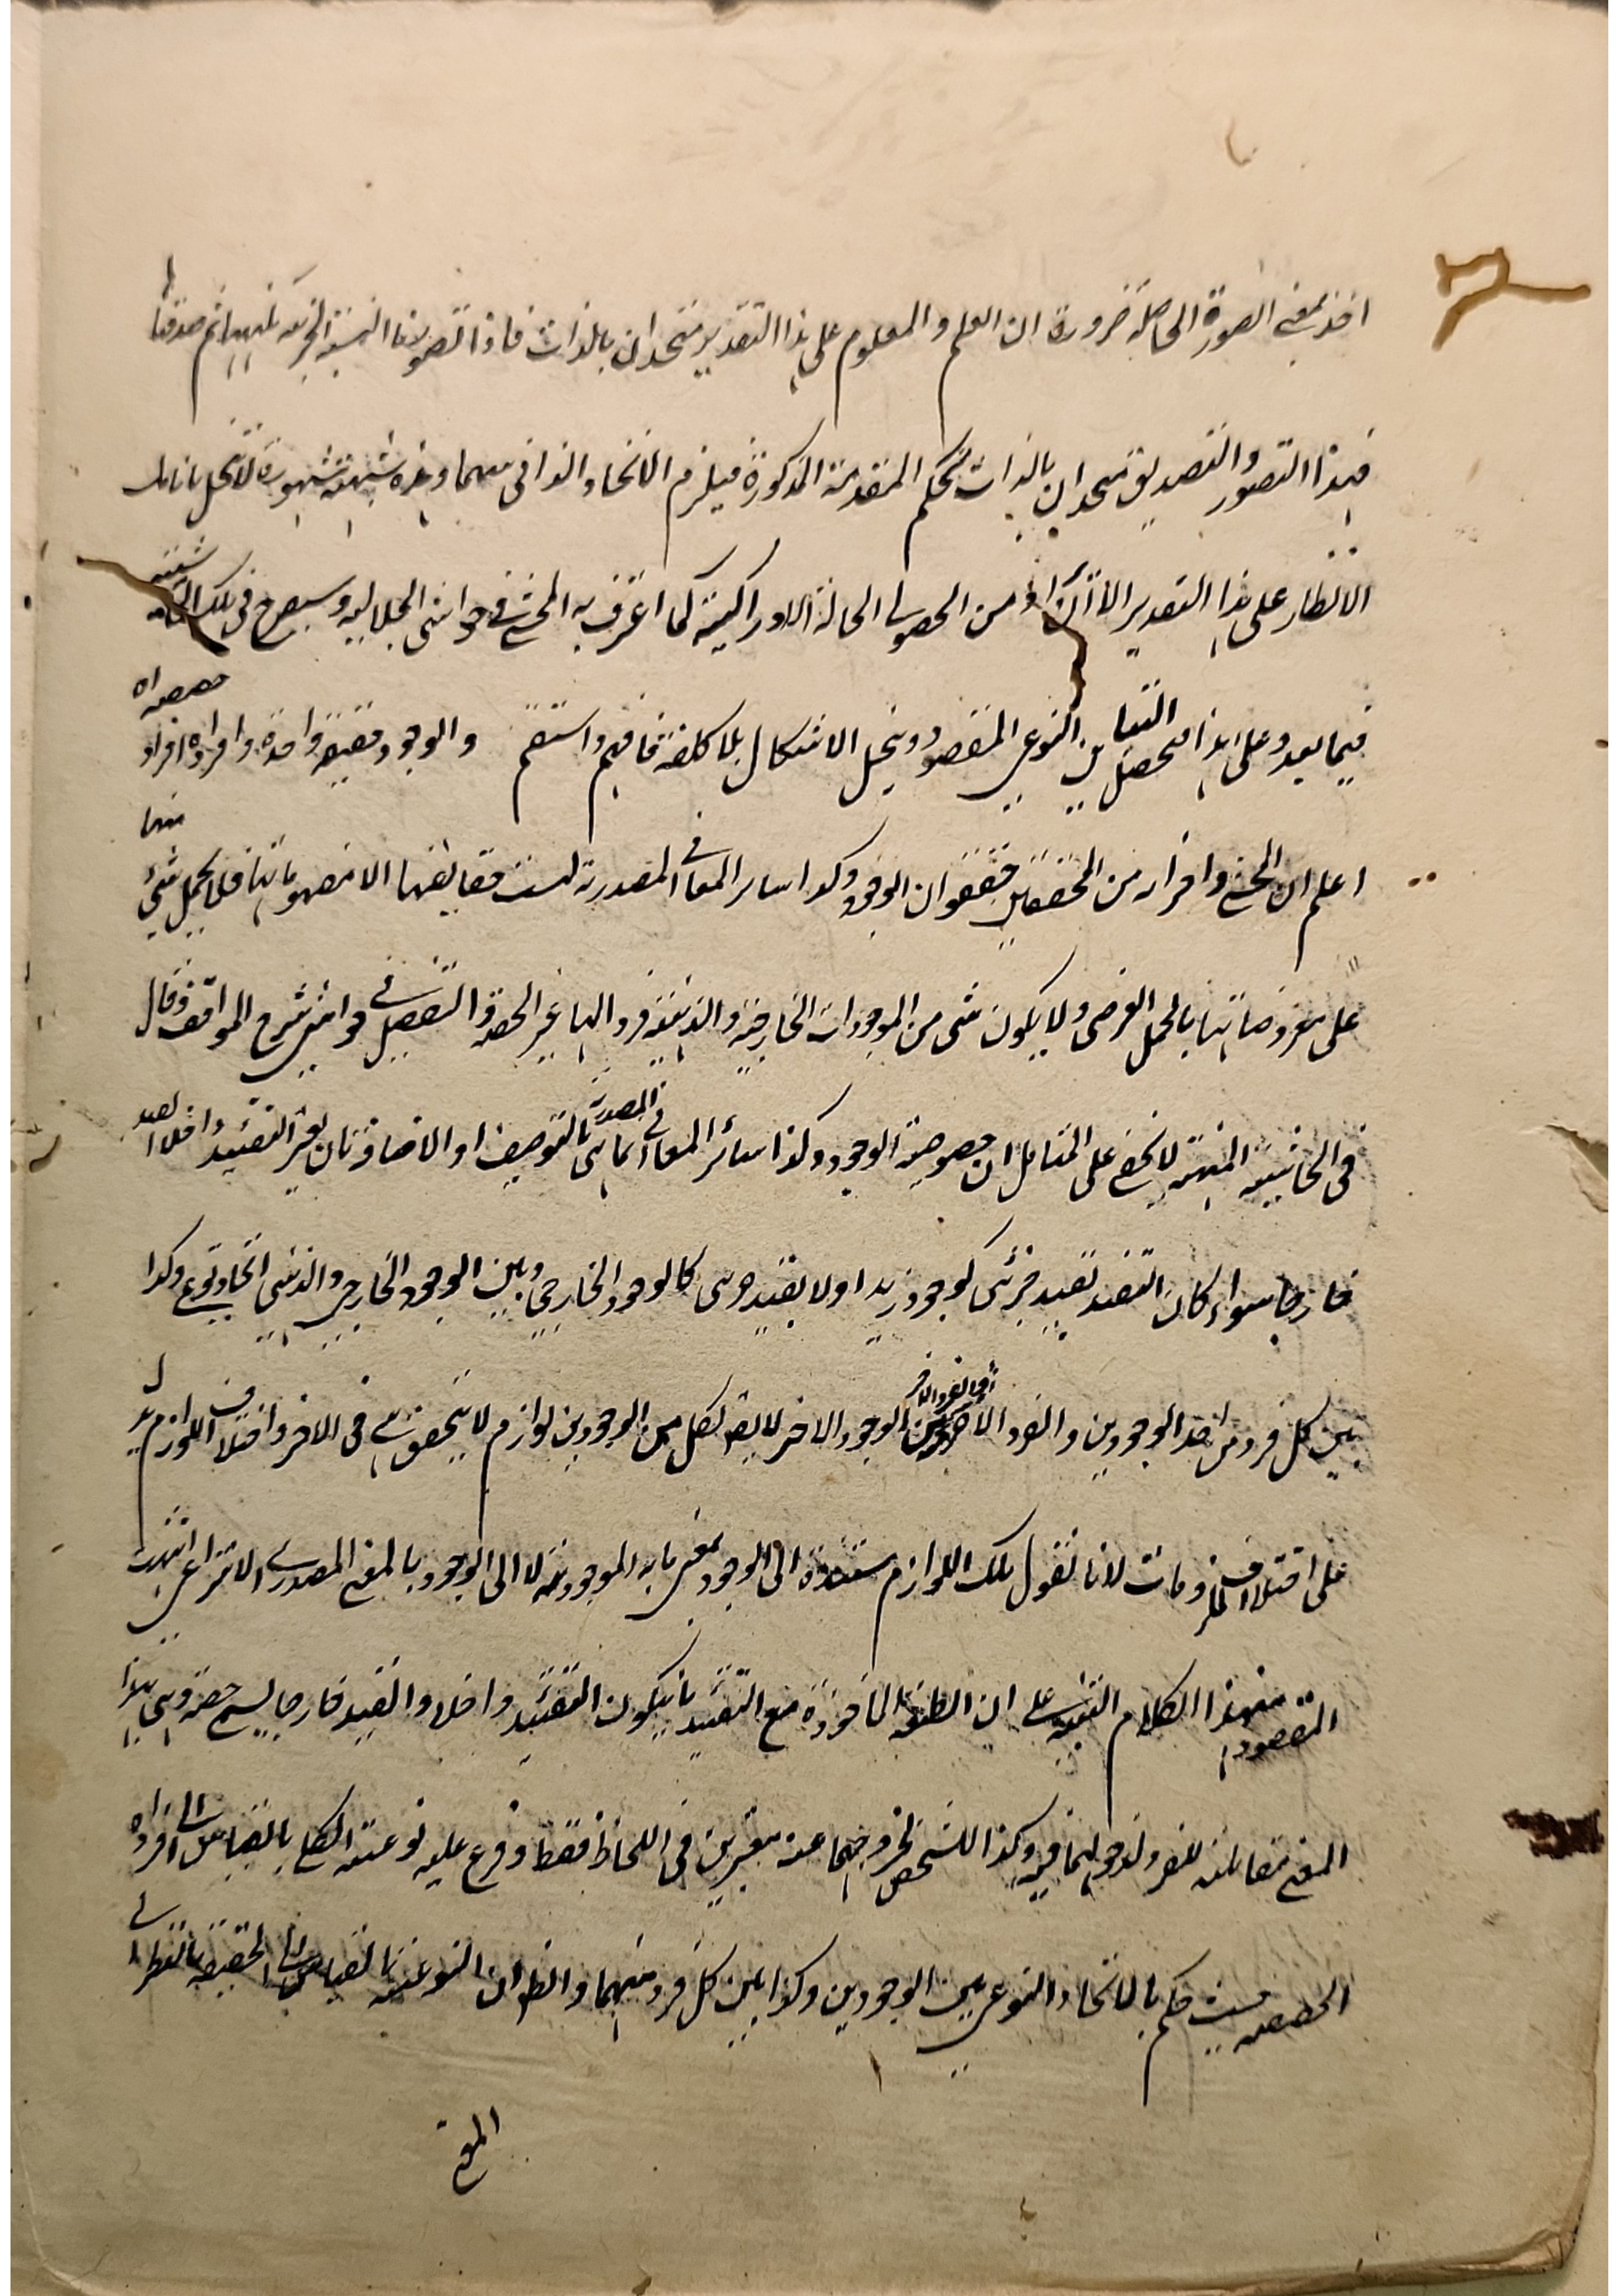 اخذ بمعنى الصورة الحاصلة ضرورة ان العلم والمعلوم على هذا التقدير متحدان بالذات فاذا تصورنا النسبة الخبرية ثم صدقنا بها
فهذا التصور والتصديق متحدان بالذات بحكم المقدمة المذكورة فيلزم الاتحاد الذاتى بينهما وهذه شبهة مشهورة لا تنحل بانامل
الانظار على هذا التقدير الا اذا اريد من الحصولى الحالة الادراكية كما اعترف به المحشى فى حواشى الجلالية وسيصرح فى تلك الحاشية
فيما بعد وعلى هذا يحصل التباين النوعى المقصود وينحل الاشكال بلا كلفة فافهم واستقم والوجود حقيقة واحدة وافراده افراد حصصية اه
اعلم ان المحشى واقرانه من المحققين حققوا ان الوجود وكذا سائر المعانى المصدرية ليست حقايقها الا مفهوماتها فلا يحمل شئ منها
على معروضاتها بالحمل العرضى ولا يكون شئ من الموجودات الخارجية والذهنية فردا لها غير الحصة والتفصيل فى حواشى شرح المواقف وقال
فى الحاشية المنهية لا يخفى على المتامل ان خصوصية الوجود وكذا سائر المعانى المصدرية انما هى بالتوصيف او الاضافة بان يعتبر التقييد داخلا والقيد
خارجا سواء كان التقييد بقيد جزئى كوجود زيد اولا بقيد جزئى كالوجود الخارجى وبين الوجود الخارجى والذهنى اتحاد نوعى وكذا
بين كل فرد من احد الوجودين والفرد الاخر من الوجود الاخر لا يقال لكل من الوجودين لوازم لا يتحقق فى الاخر واختلاف اللوازم يدل
على اختلاف الملزومات لانا نقول تلك اللوازم مستندة الى الوجود بمعنى ما به الموجودية لا الى الوجود بالمعنى المصدرى الانتزاعى انتهت
المقصود من هذا الكلام التنبيه على ان الطبيعة الماخوذة مع التقييد بان يكون التقييد داخلا والقيد خارجا ليسمى حصة وهى بهذا
المعنى مقابلة للفرد لدخولهما فيه وكذا للشخص لخروجهما عنه معتبرين فى اللحاظ فقط وفرع عليه نوعية الكلى بالقياس الى افراده
الحصصية حيث حكم بالاتحاد النوعى بين الوجودين وكذا بين كل فرد منهما وانظر ان النوعية بالقياس الى الحقيقة بالنظر الى
المعنى